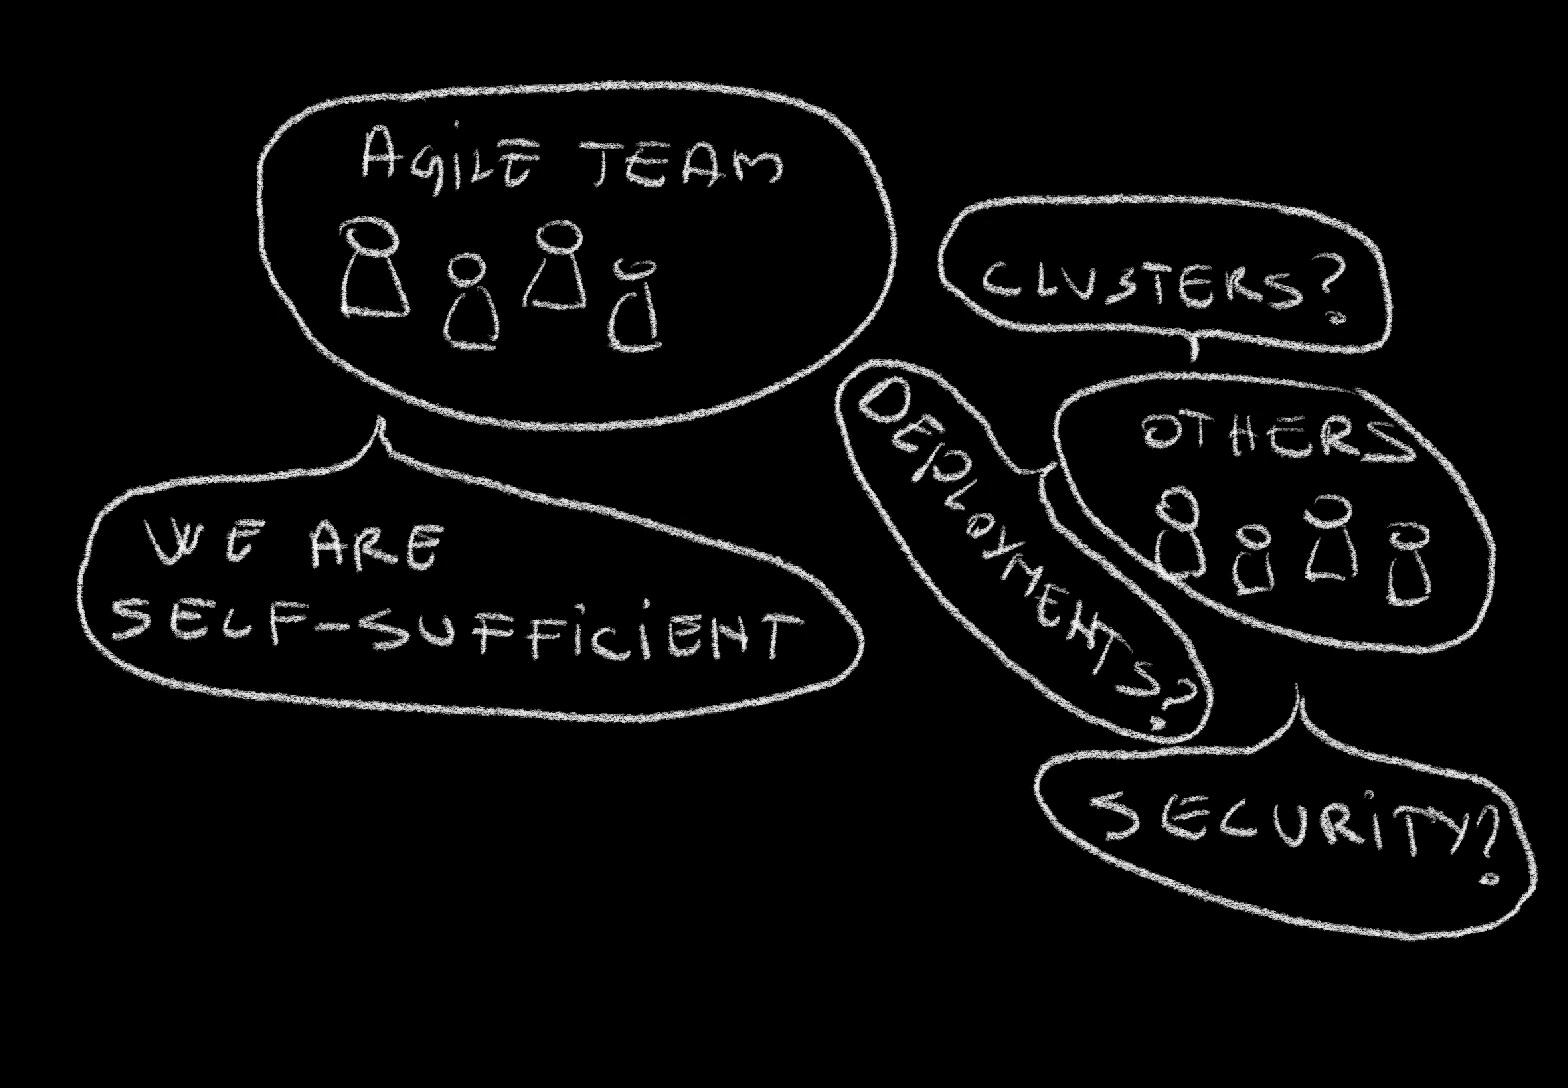 AGiLE TEAM
WE ARE
SELF-SUFFiCiENT
CLUSTERS?
OTHERS
DEPLOYMENTS?
SECURiTY?